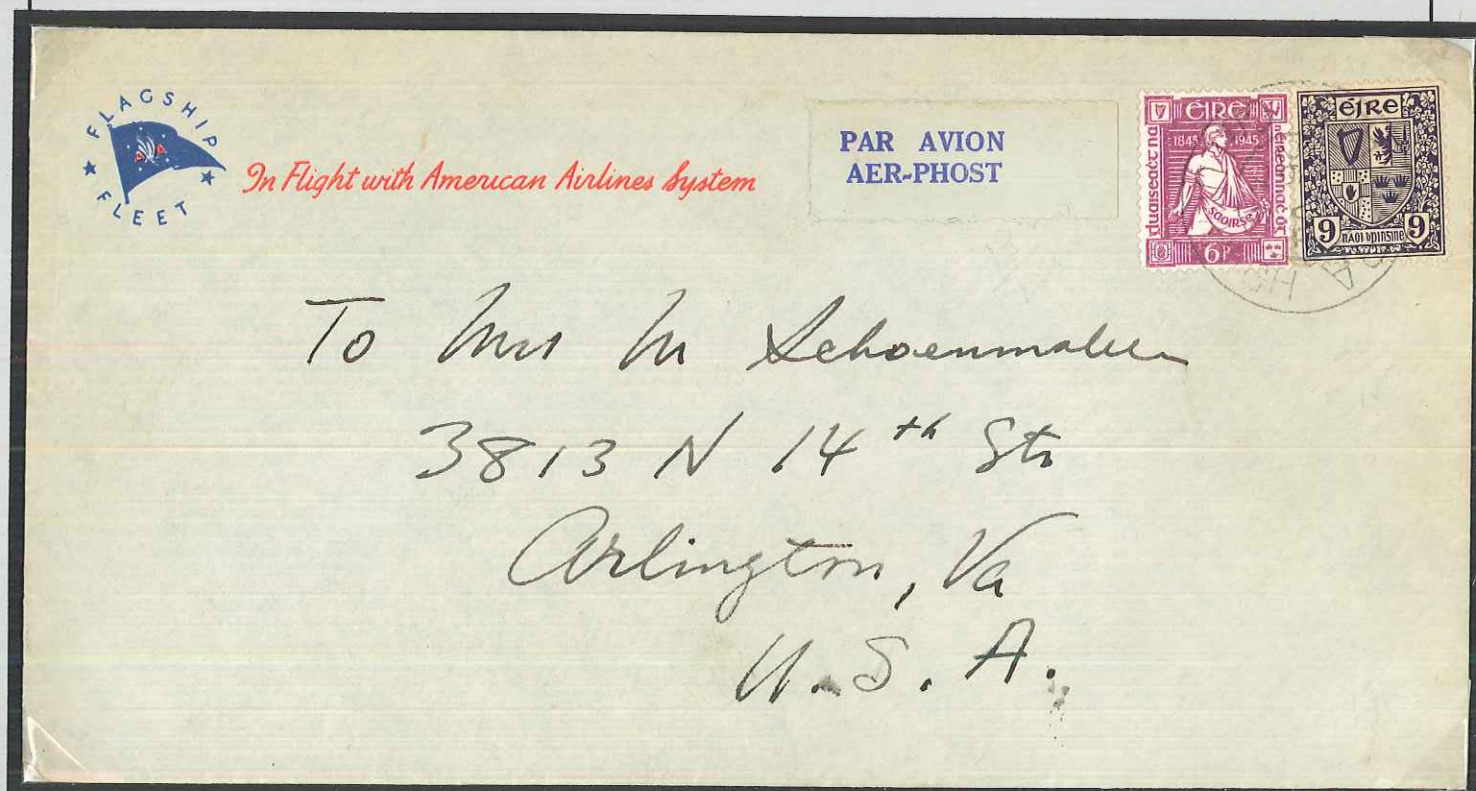 FLAGSHIP FLEET
AA
In Flight with American Airlines System
PAR AVION
AER-PHOST
ÉIRE
1845 1945
SAOIRSE
6P
ÉIRE
9 9
To Mrs M Schoenmaker
3813 N 14th Str
Arlington, Va
U.S.A.